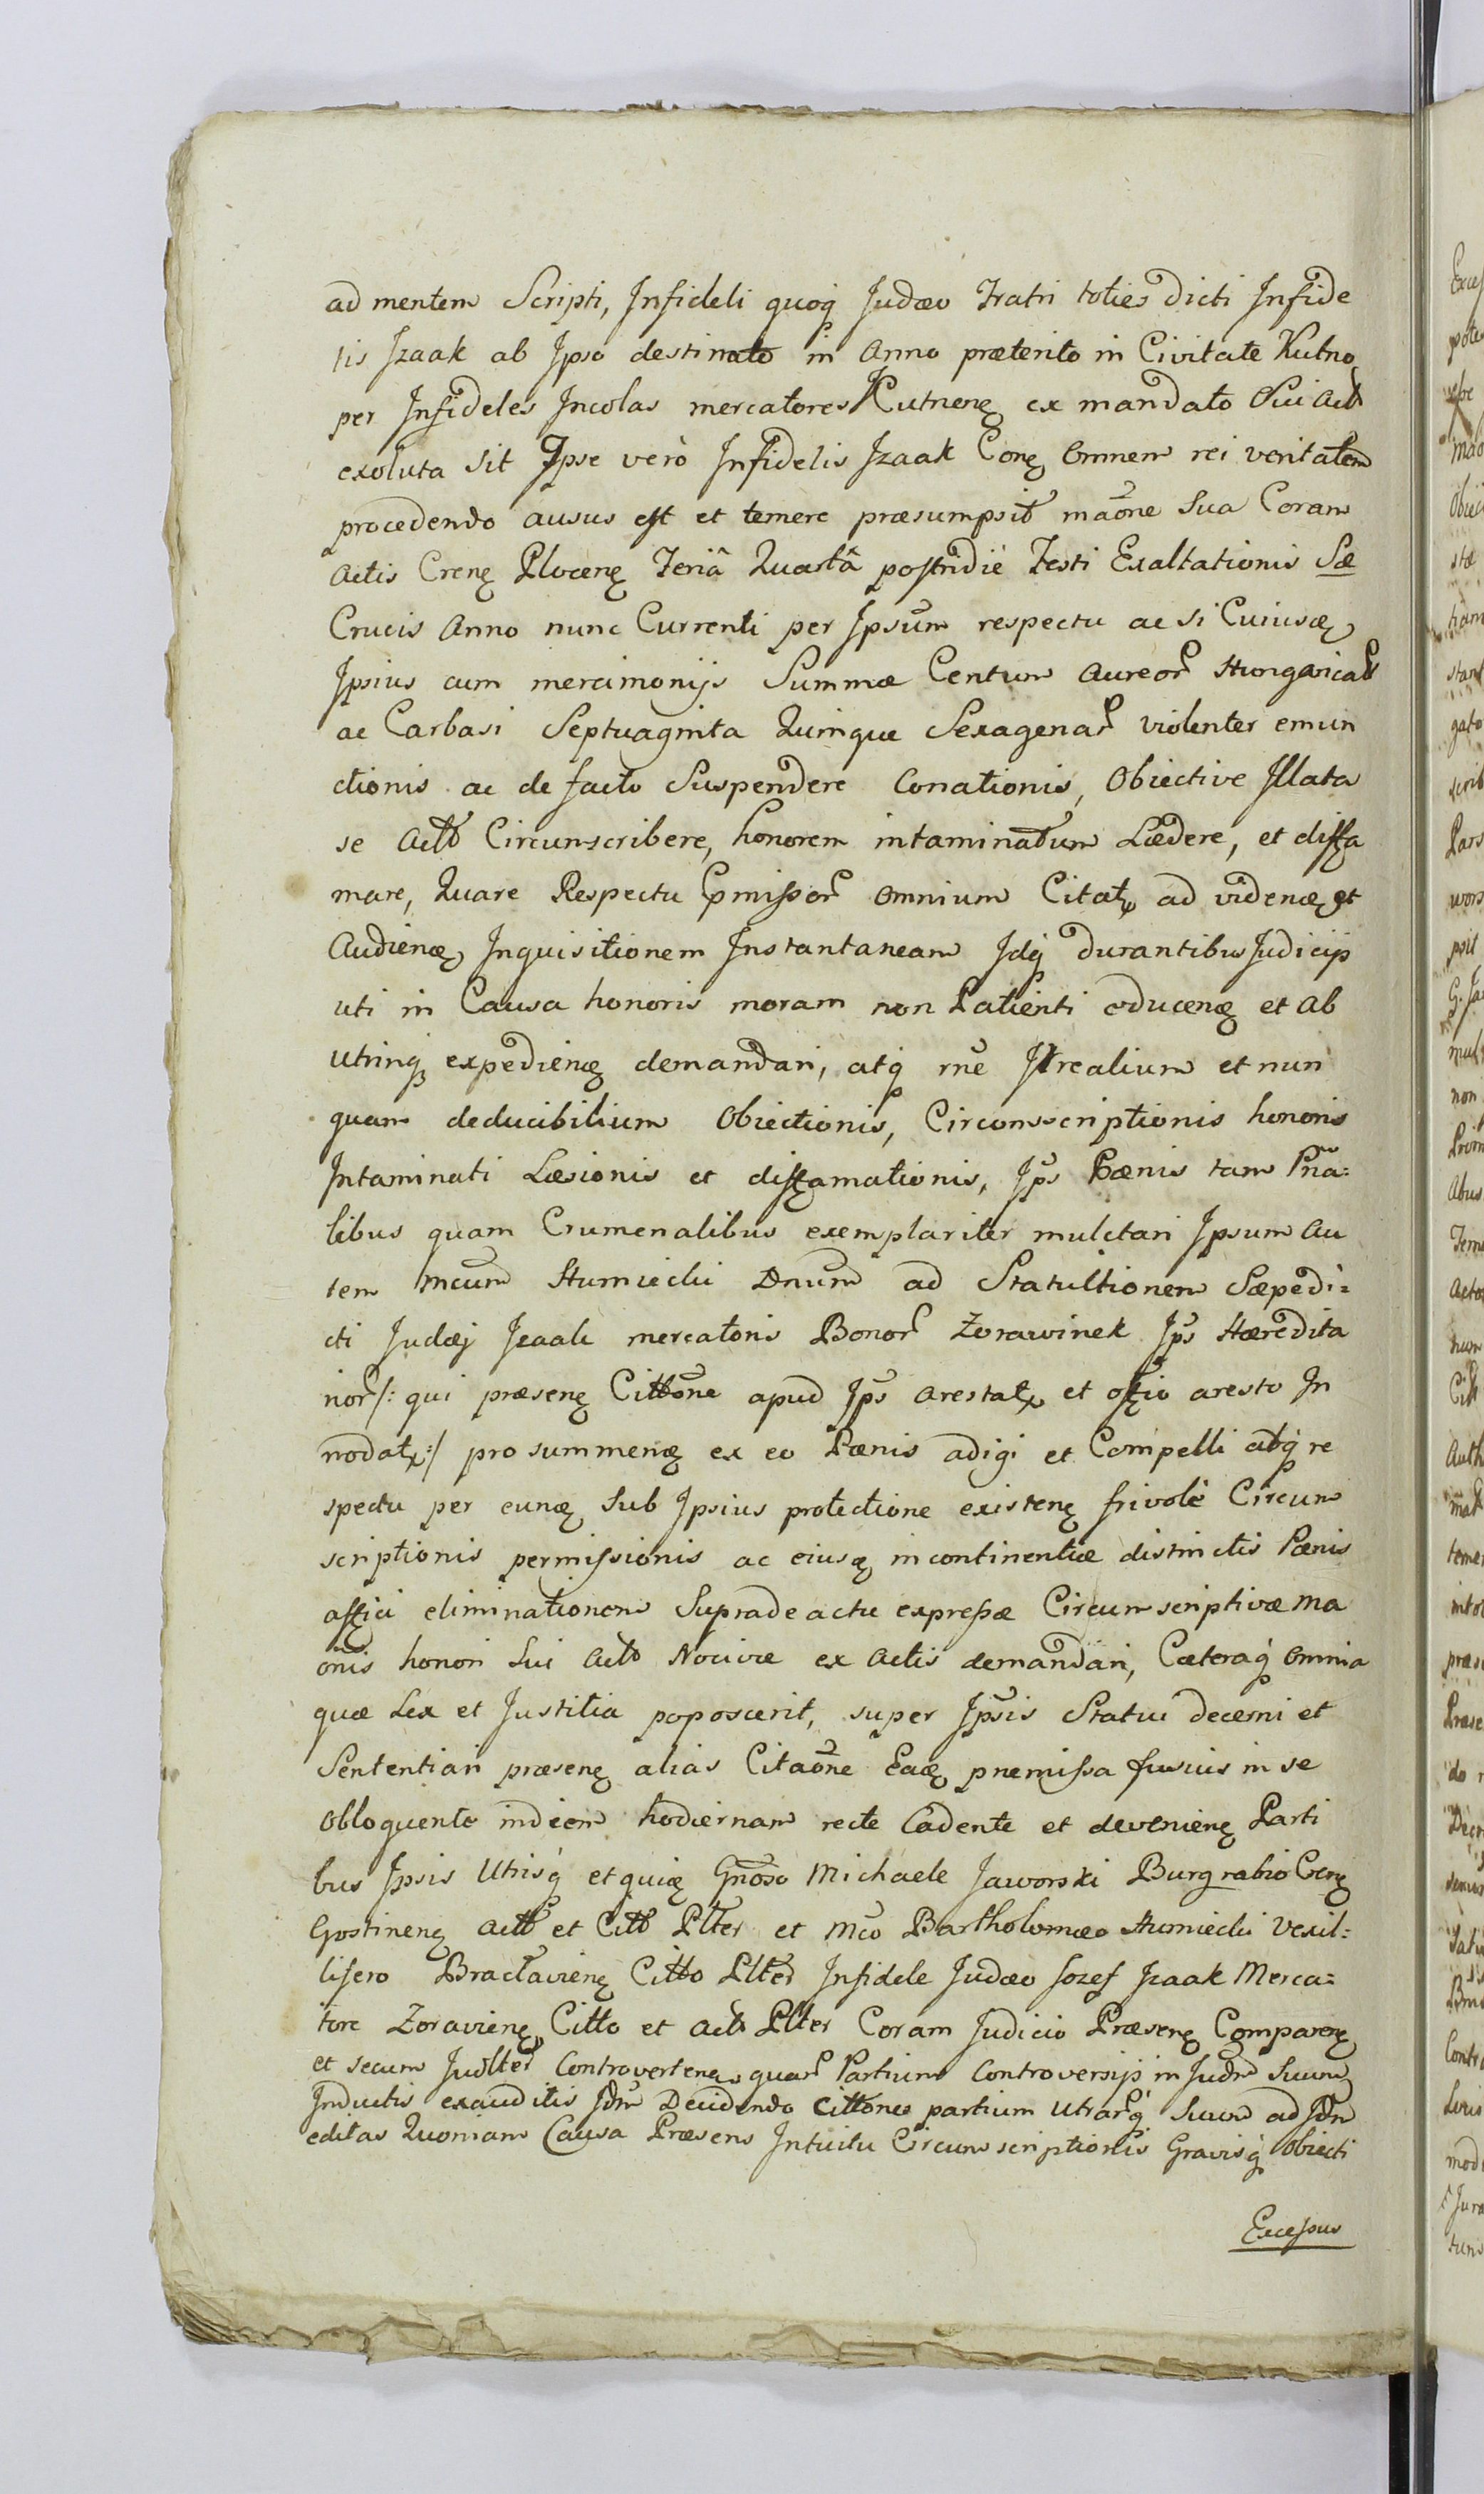 ad mentem Scripti, Infideli quoq̃ Judæo Fratri toties dicti Infide
lis Izaak ab Ipso destinato in Anno præterito in Civitate Kutno
per Infideles Incolas mercatores Kutnenꝫ ex mandato Sui Actō
exoluta sit Ipse verò Infidelis Izaak Conꝫ Omnem rei veritatem
procedendo ausus est et temere præsumpsit mãone Sua Coram
Actis Crenꝫ Plocenꝫ Feriâ Quartâ postridie Festi Exaltationis Sæ
Crucis Anno nunc Currenti per Ipsum respectu ac si Cuiusꝫ
Ipsius cum mercimonijs Summæ Centum Aureor̃ Hungarical
ac Carbasi Septuaginta Quinque Sexagenar̃ violenter emun
ctionis ac de facto Suspendere Conationis, Obiective Illata
se Actō Circumscribere, honorem intaminatum Lædere, et diffa
mare, Quare Respectu p̃missor̃ Omnium Citatꝫ ad videnꝫ et
Audienꝫ Inquisitionem Instantaneam Idq̃ durantibus Judicijs
uti in Causa honoris moram non Patienti educenꝫ et ab
utrinq̃ expedienꝫ demandari, atq̃ rñe Irrealium et nun
quam deducibilium Obiectionis, Circumscriptionis honoris
Intaminati Læsionis et diffamationis, Ip̃s Pænis tam Pñа:
libus quam Crumenalibus exemplariter mulctari Ipsum Au
tem Mcum Humiecki Dnum ad Statuitionem Sæpedi:
cti Judæj Izaak mercatoris Bonor̃ Zorawinek Ip̃s Hæredita
rior̃ /: qui præsenꝫ Cittõne apud Ip̃s Arestatꝫ et offio aresto In
nodatꝫ :/ pro summenꝫ ex eo Pænis adigi et Compelli atq̃ re
spectu per eunꝫ Sub Ipsius protectione existenꝫ frivolè Circum
scriptionis permissionis ac eiusꝫ incontinentiæ distinctis Pænis
affici eliminationem Suprade actu expressæ Circumscriptivæ Ma
onis honori Sui Actō Nocivæ ex Actis demandari, Cæteraq̃ Omnia
quæ Lex et Justitia poposcerit, super Ipsis Statui decerni et
Sententiari præsenꝫ alias Citaõne Eaꝫ præmissa fusius in se
Obloquente in diem hodiernam recte Cadente et devenienꝫ Parti
bus Ipsis Utrisq̃ et quiꝫ Gnõso Michaele Jaworski Burgrabio Crenꝫ
Gostinenꝫ Actō et Cittō Plter et Mc̃o Bartholomæo Humiecki Vexil:
lifero Braclavienꝫ Citto Plter Infidele Judæo Jozef Izaak Merca:
tore Zoravienꝫ Citto et Actō Plter Coram Judicio Præsenꝫ Comparenꝫ
et secum Judlter Controvertenꝫ quar̃ Partium Controversijs in Judm Suum
Inductis exauditis Jdm Decidendo Cittones partium Utrar̃q̃ Suum ad Jdm
editas Quoniam Causa Præsens Intuitu Circumscriptionis Gravisq̃ Obiecti
Excessus